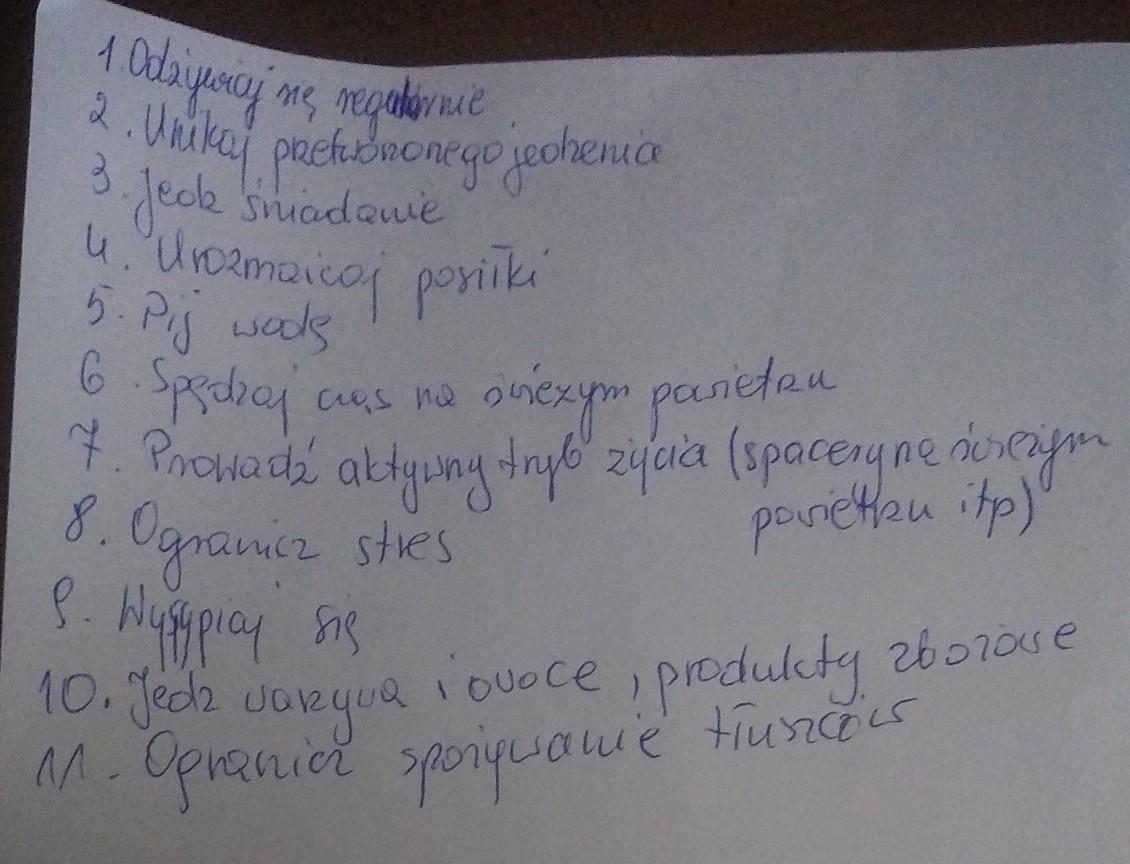 1. Odżywiaj się regularnie
2. Unikaj przetworzonego jedzenia
3. Jedz śniadanie
4. Urozmaicaj posiłki
5. Pij wodę
6. Spędzaj czas na świeżym powietrzu
7. Prowadź aktywny tryb życia (spacery na świeżym
powietrzu itp)
8. Ogranicz stres
9. Wysypiaj się
10. Jedz warzywa i owoce, produkty zbożowe
11. Ogranicz spożywanie tłuszczów